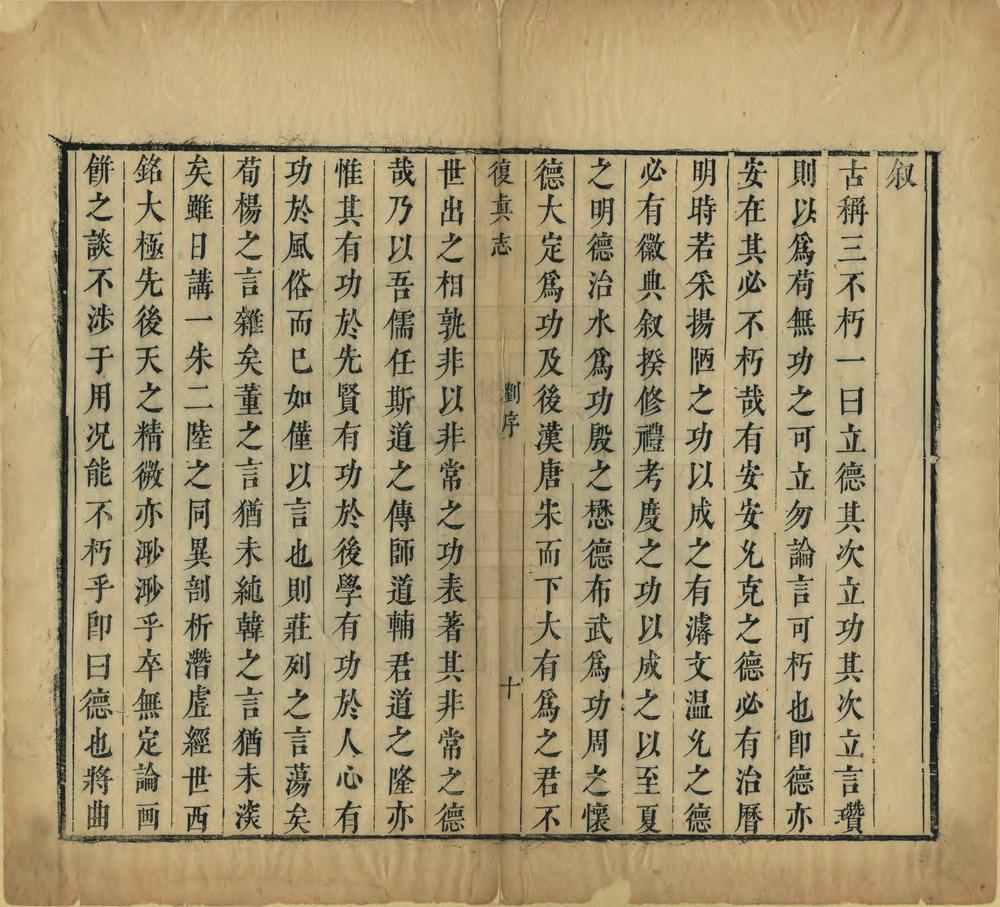 叙
古稱三不朽一曰立德其次立功其次立言瓚
則以爲苟無功之可立勿論言可朽也卽德亦
安在其必不朽哉有安安允克之德必有治曆
明時若采揚陋之功以成之有濬文温允之德
必有徽典叙揆修禮考度之功以成之以至夏
之明德治水爲功殷之懋德布武爲功周之懷
德大定爲功及後漢唐宋而下大有爲之君不
復真志
劉序
十
世出之相孰非以非常之功表著其非常之德
哉乃以吾儒任斯道之傳師道輔君道之隆亦
惟其有功於先賢有功於後學有功於人心有
功於風俗而已如僅以言也則莊列之言蕩矣
荀楊之言雜矣董之言猶未純韓之言猶未淡
矣雖日講一朱二陸之同異剖析潛虛經世西
銘大極先後天之精微亦渺渺乎卒無定論画
餅之談不涉于用况能不朽乎卽曰德也將曲